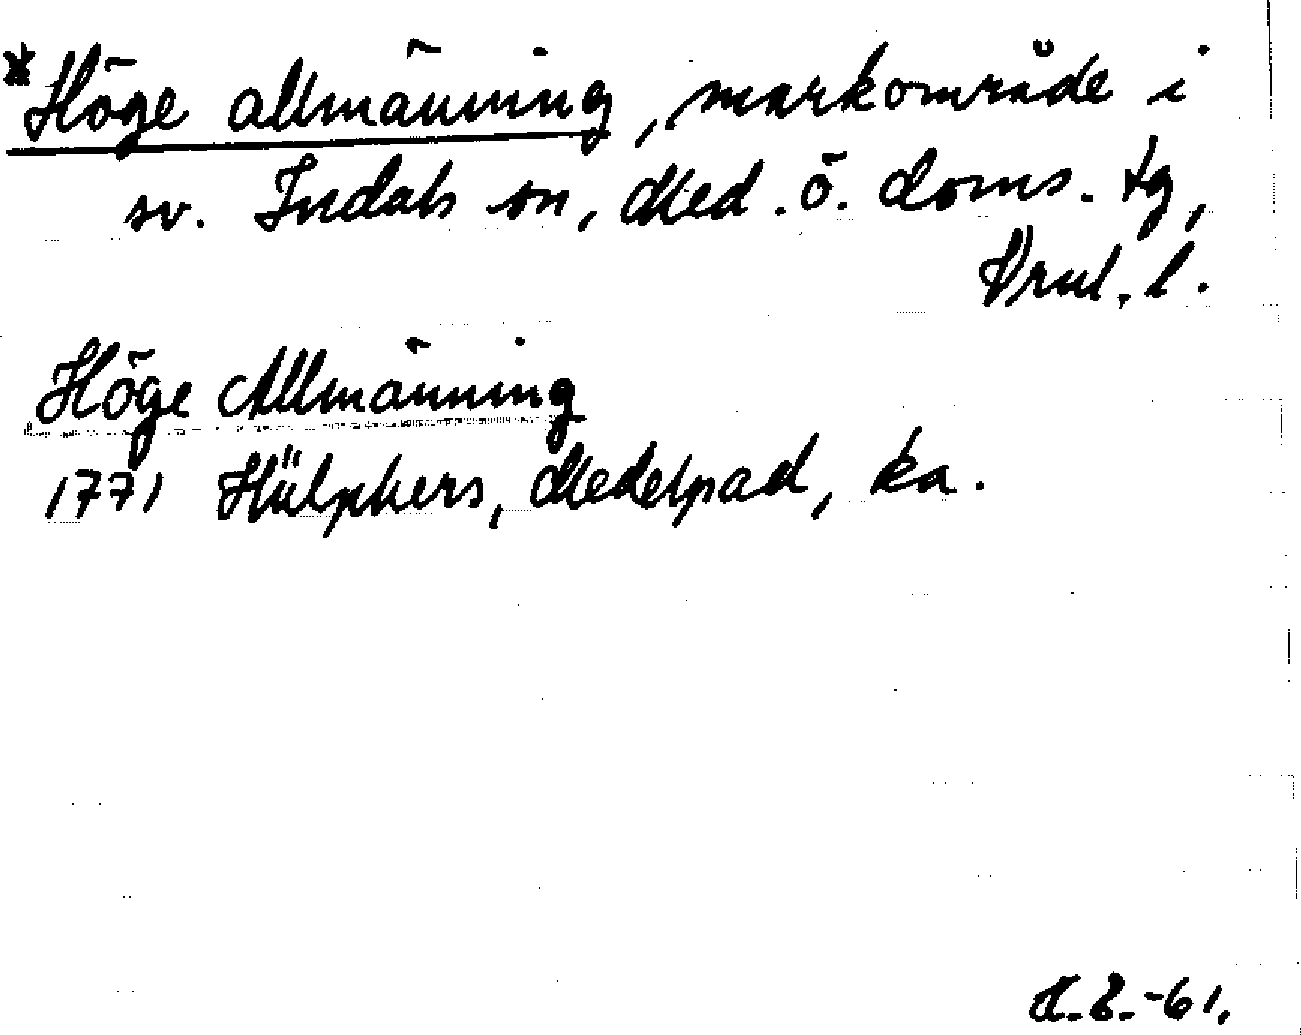 *Höge allmänning, markområde i
sv. Indals sn, Med. ö. doms. tg,
Vnl. l.
Höge Allmänning
1771 Hülphers, Medelpad, ka.
-61.